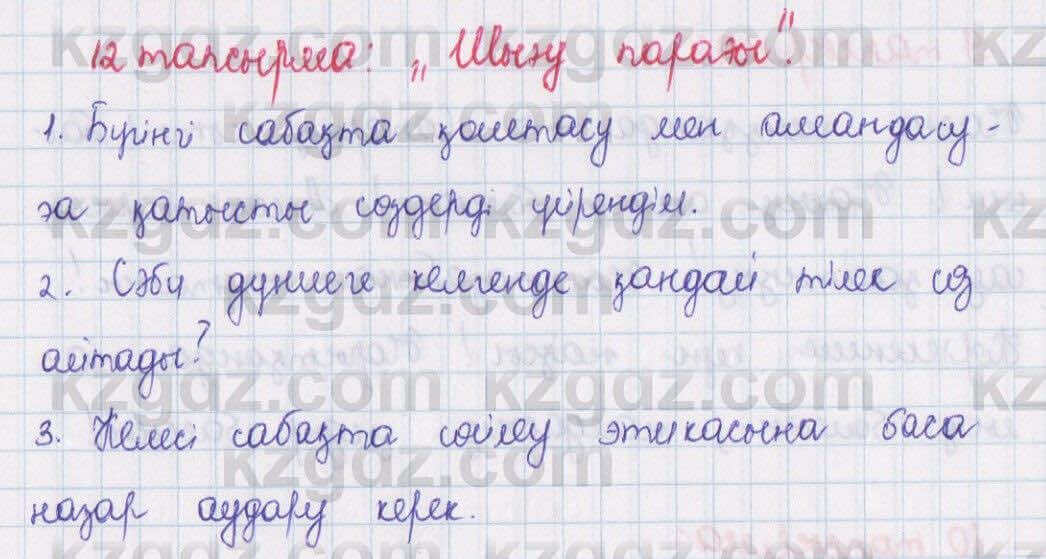 12 тапсырма: „Шығу парағы".
1. Бүгінгі сабақта қоштасу мен амандасу-
ға қатысты сөздерді үйрендім.
2. Сәби дүниеге келгенде қандай тілек сөз
айтады?
3. Келесі сабақта сөйлеу этикасына баса
назар аудару керек.
kzgdz.com